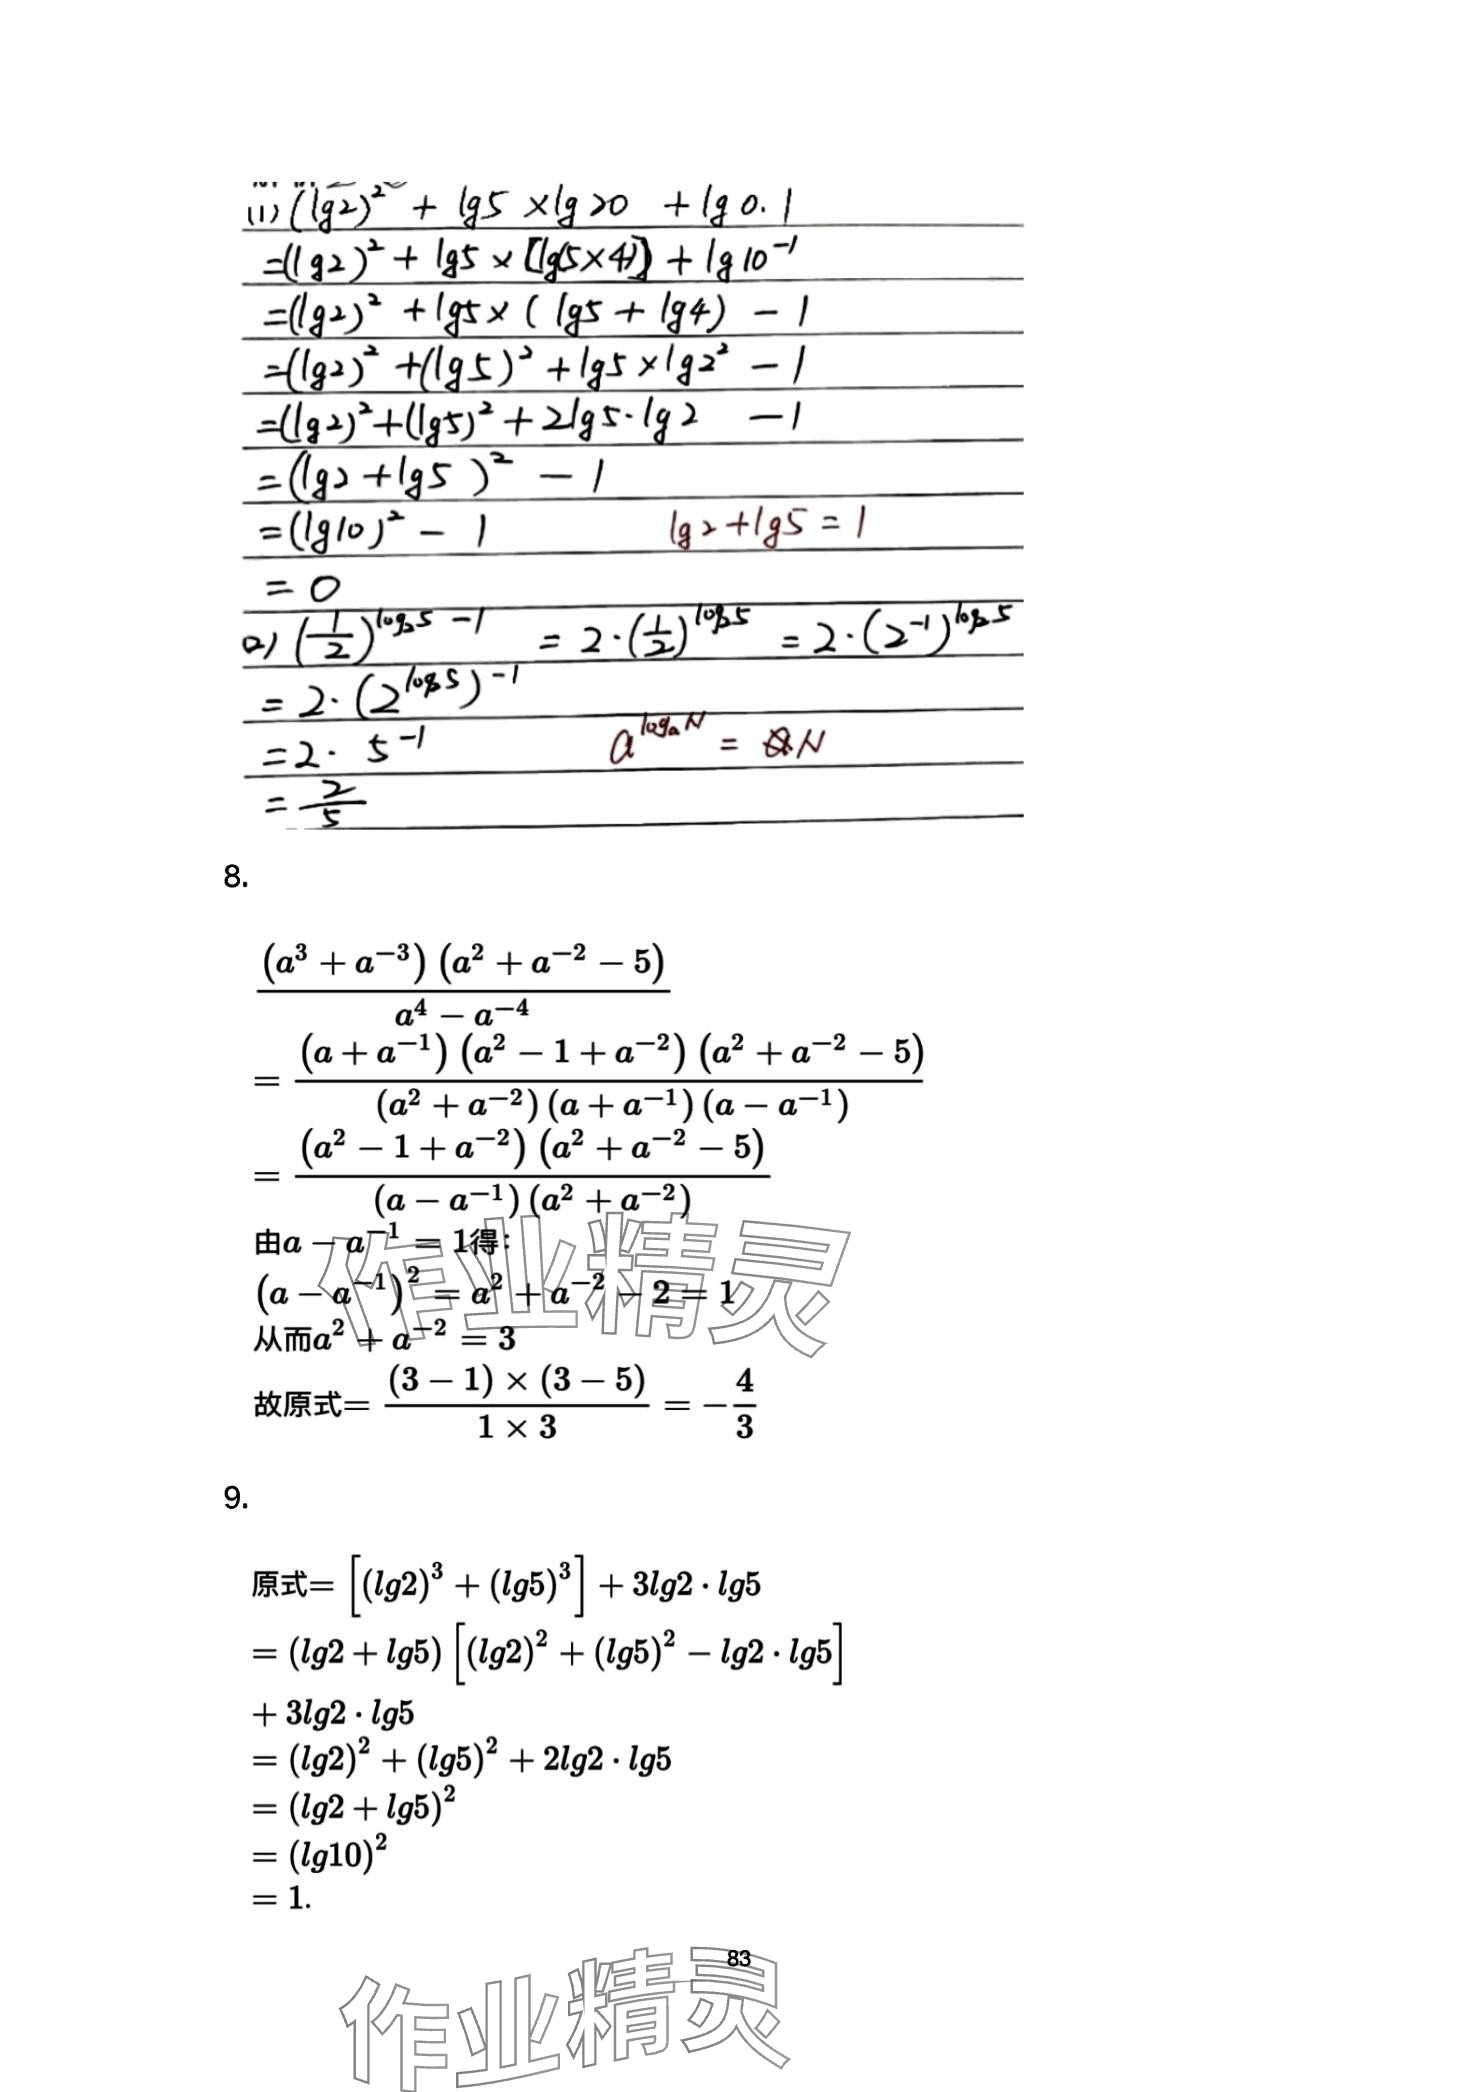 (1) (lg2)² + lg5 × lg20 + lg0.1
=(lg2)² + lg5 × [lg(5×4)] + lg10⁻¹
=(lg2)² + lg5 × ( lg5 + lg4) - 1
=(lg2)² +(lg5)² + lg5 × lg2² - 1
=(lg2)²+(lg5)² + 2lg5·lg2 - 1
= (lg2 + lg5 )² - 1
= (lg10)² - 1 lg2+lg5 = 1
= 0
(2) (1/2)^(log₂5 - 1) = 2·(1/2)^(log₂5) = 2·(2⁻¹)^(log₂5)
= 2·(2^(log₂5))⁻¹
= 2· 5⁻¹ a^(logₐN) = N
= 2/5
8.
(a³ + a⁻³)(a² + a⁻² − 5) / (a⁴ − a⁻⁴)
= (a + a⁻¹)(a² − 1 + a⁻²)(a² + a⁻² − 5) / (a² + a⁻²)(a + a⁻¹)(a − a⁻¹)
= (a² − 1 + a⁻²)(a² + a⁻² − 5) / (a − a⁻¹)(a² + a⁻²)
由a − a⁻¹ = 1得:
(a − a⁻¹)² = a² + a⁻² − 2 = 1
从而a² + a⁻² = 3
故原式= (3 − 1) × (3 − 5) / (1 × 3) = −4/3
作业精灵
9.
原式= [(lg2)³ + (lg5)³] + 3lg2 · lg5
= (lg2 + lg5) [(lg2)² + (lg5)² − lg2 · lg5]
+ 3lg2 · lg5
= (lg2)² + (lg5)² + 2lg2 · lg5
= (lg2 + lg5)²
= (lg10)²
= 1.
83
作业精灵